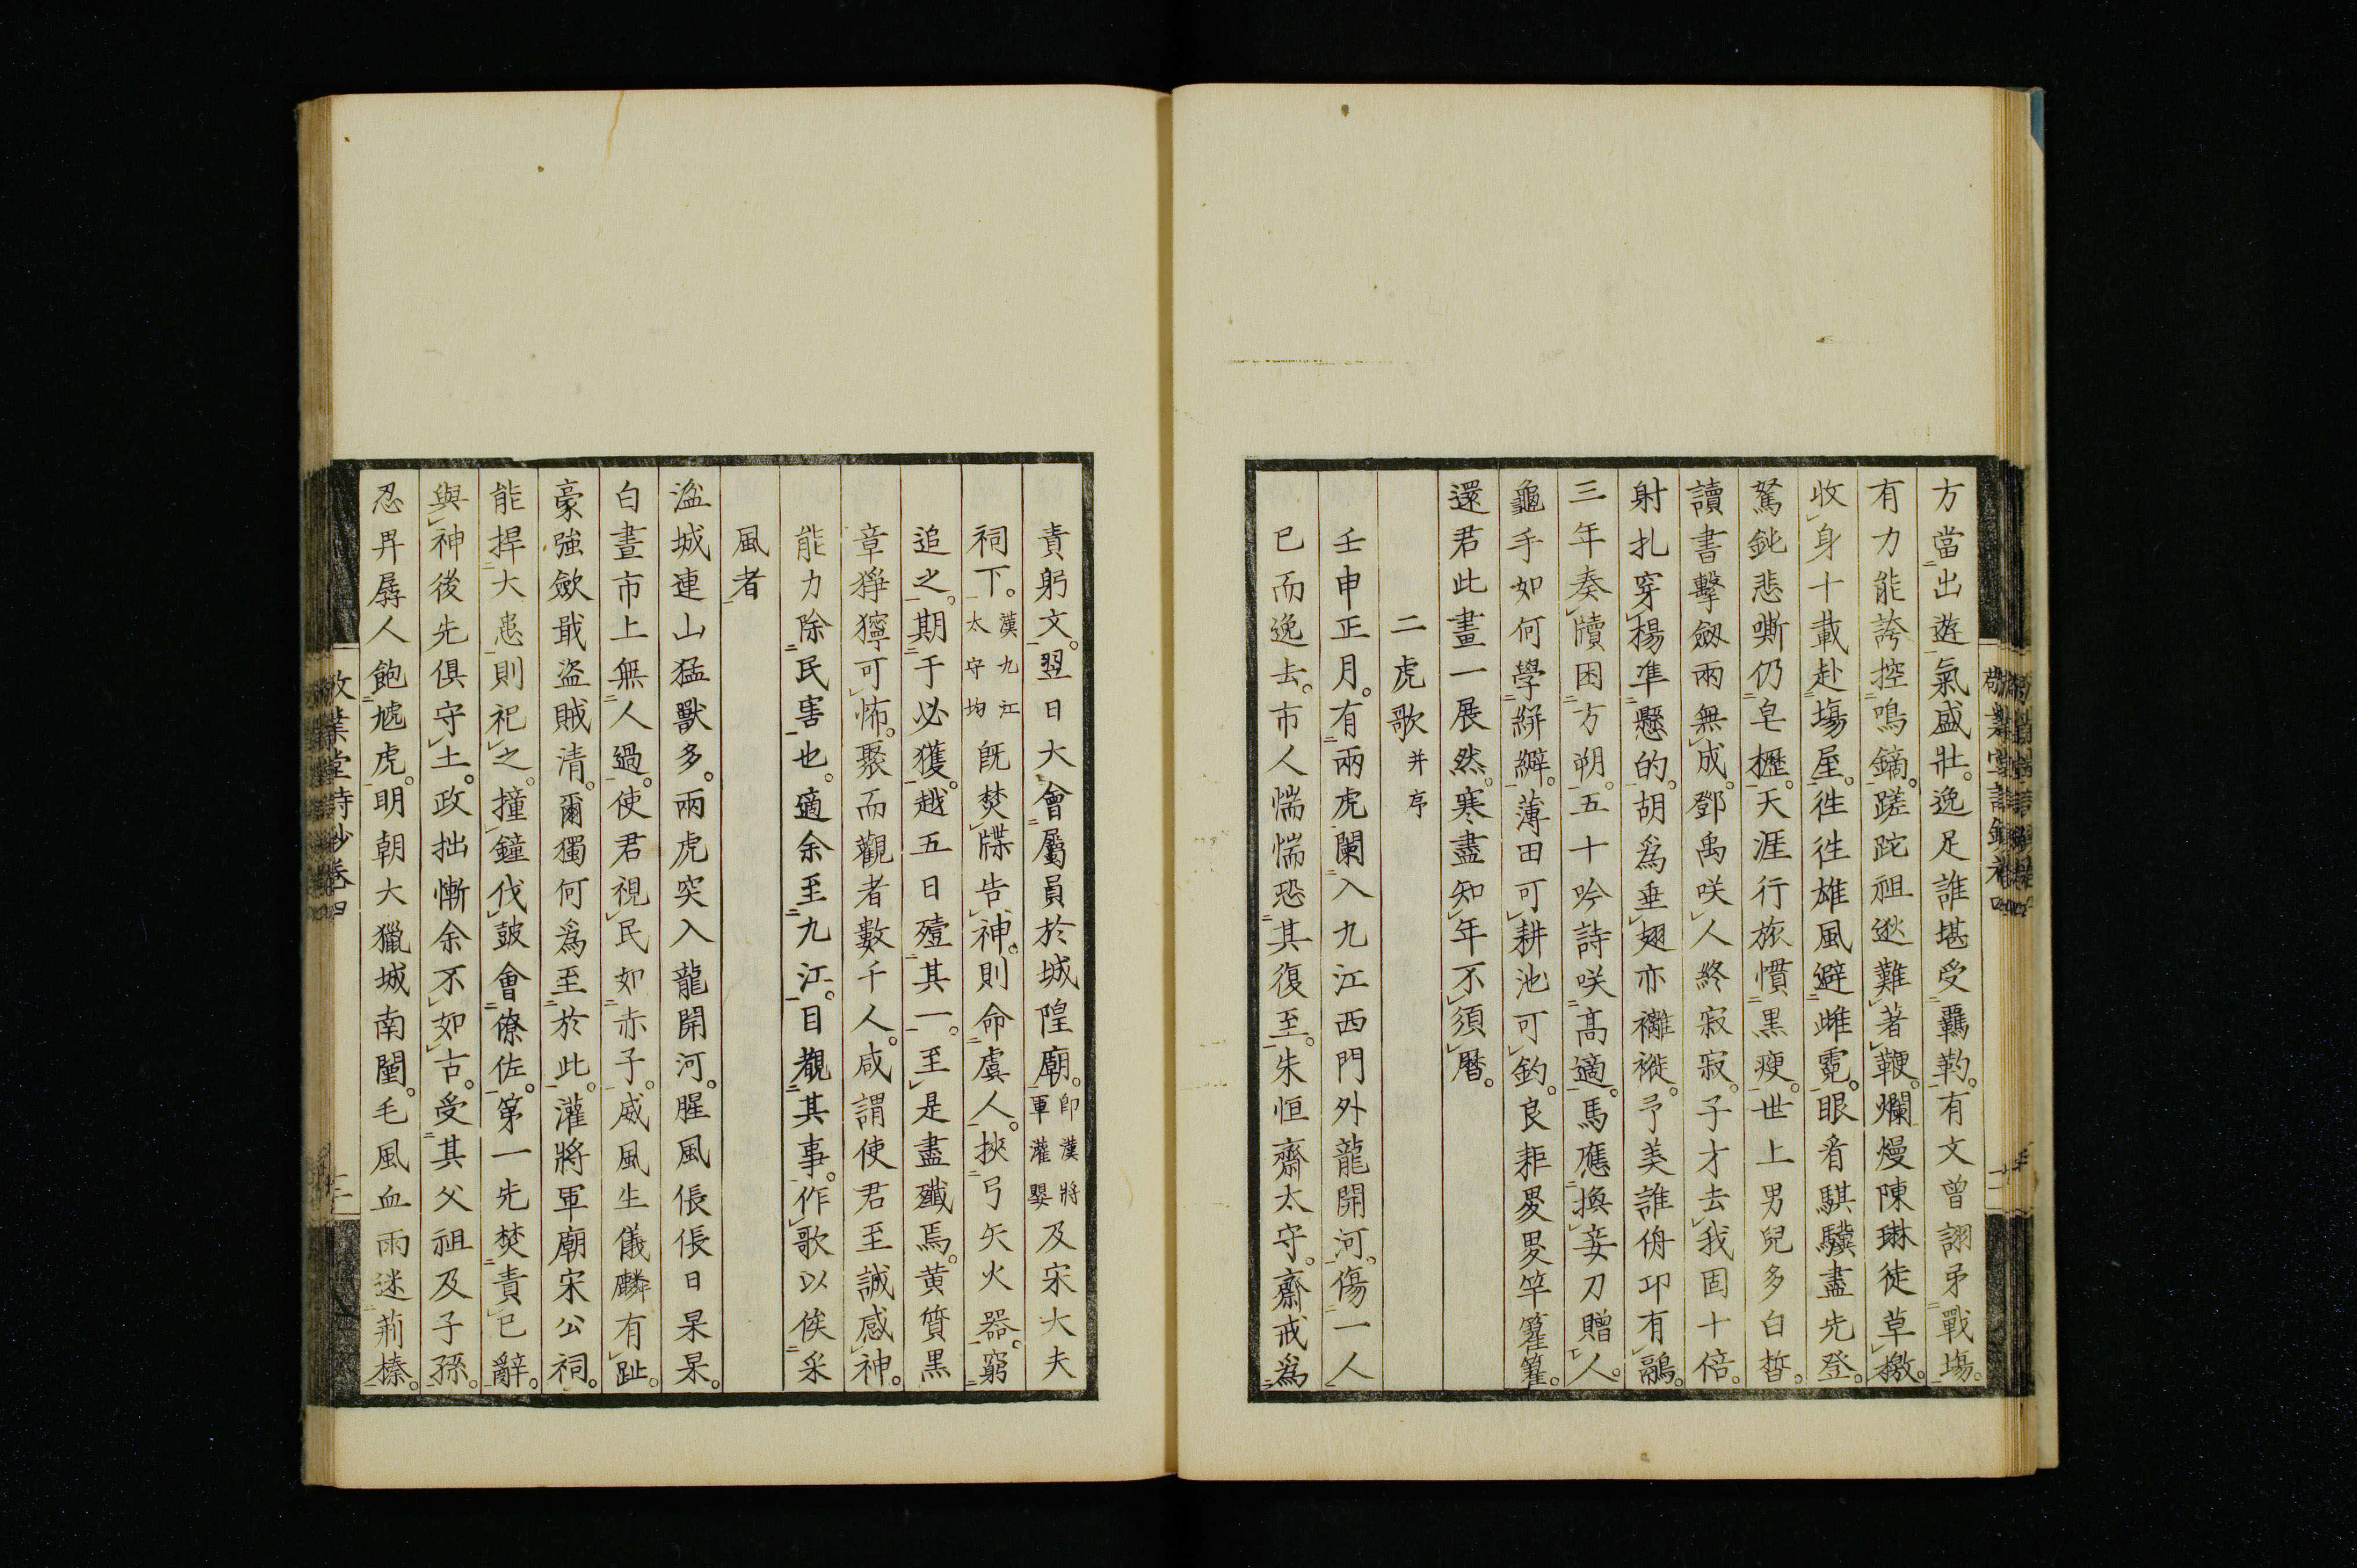 方當出遊氣盛壯。逸足誰堪受羈靮。有文曾詡弔戰塲。
有力能誇控鳴鏑。蹉跎祖逖難著鞭。爛熳陳琳徒草檄。
收身十載赴塲屋。徃徃雄風避雌霓。眼看騏驥盡先登。
駑鈍悲嘶仍皂櫪。天涯行旅慣黒瘦。世上男兒多白晳。
讀書擊劔兩無成。鄧禹咲人終寂寂。子才去我固十倍。
射札穿楊凖懸的。胡爲垂翅亦襳褷。予美誰侜卭有鷊。
三年奏牘困方朔。五十吟詩咲高適。馬應換妾刀贈人。
龜手如何學絣澼。薄田可耕池可釣。良耟畟畟竿籊籊。
還君此畫一展然。寒盡知年不須曆。
二虎歌并序
壬申正月。有兩虎闌入九江西門外龍開河。傷一人
已而逸去。市人惴惴恐其復至。朱恒齋太守。齋戒爲
責躬文。翌日大會屬員於城隍廟。卽漢將軍灌嬰及宋大夫
祠下。漢九江太守均旣焚牒告神。則命虞人。挾弓矢火器。窮
追之。期于必獲。越五日殪其一。至是盡殲焉。黄質黒
章獰獰可怖。聚而觀者數千人。咸謂使君至誠感神。
能力除民害也。適余至九江。目覩其事。作歌以俟采
風者
湓城連山猛獸多。兩虎突入龍開河。腥風倀倀日杲杲。
白晝市上無人過。使君視民如赤子。威風生儀麟有趾。
豪強歛戢盗賊清。爾獨何爲至於此。灌將軍廟宋公祠。
能捍大患則祀之。撞鐘伐鼓會僚佐。第一先焚責已辭。
與神後先俱守土。政拙慚余不如古。受其父祖及子孫。
忍畀孱人飽虓虎。明朝大獵城南闉。毛風血雨迷荊榛。
敬業堂詩鈔卷四